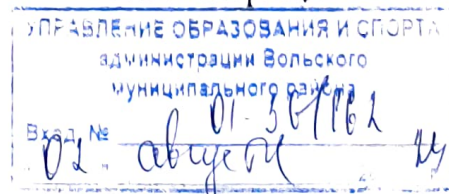 УПРАВЛЕНИЕ ОБРАЗОВАНИЯ И СПОРТА
администрации Вольского
муниципального района
Вход. № 01-36/
02 августа 24